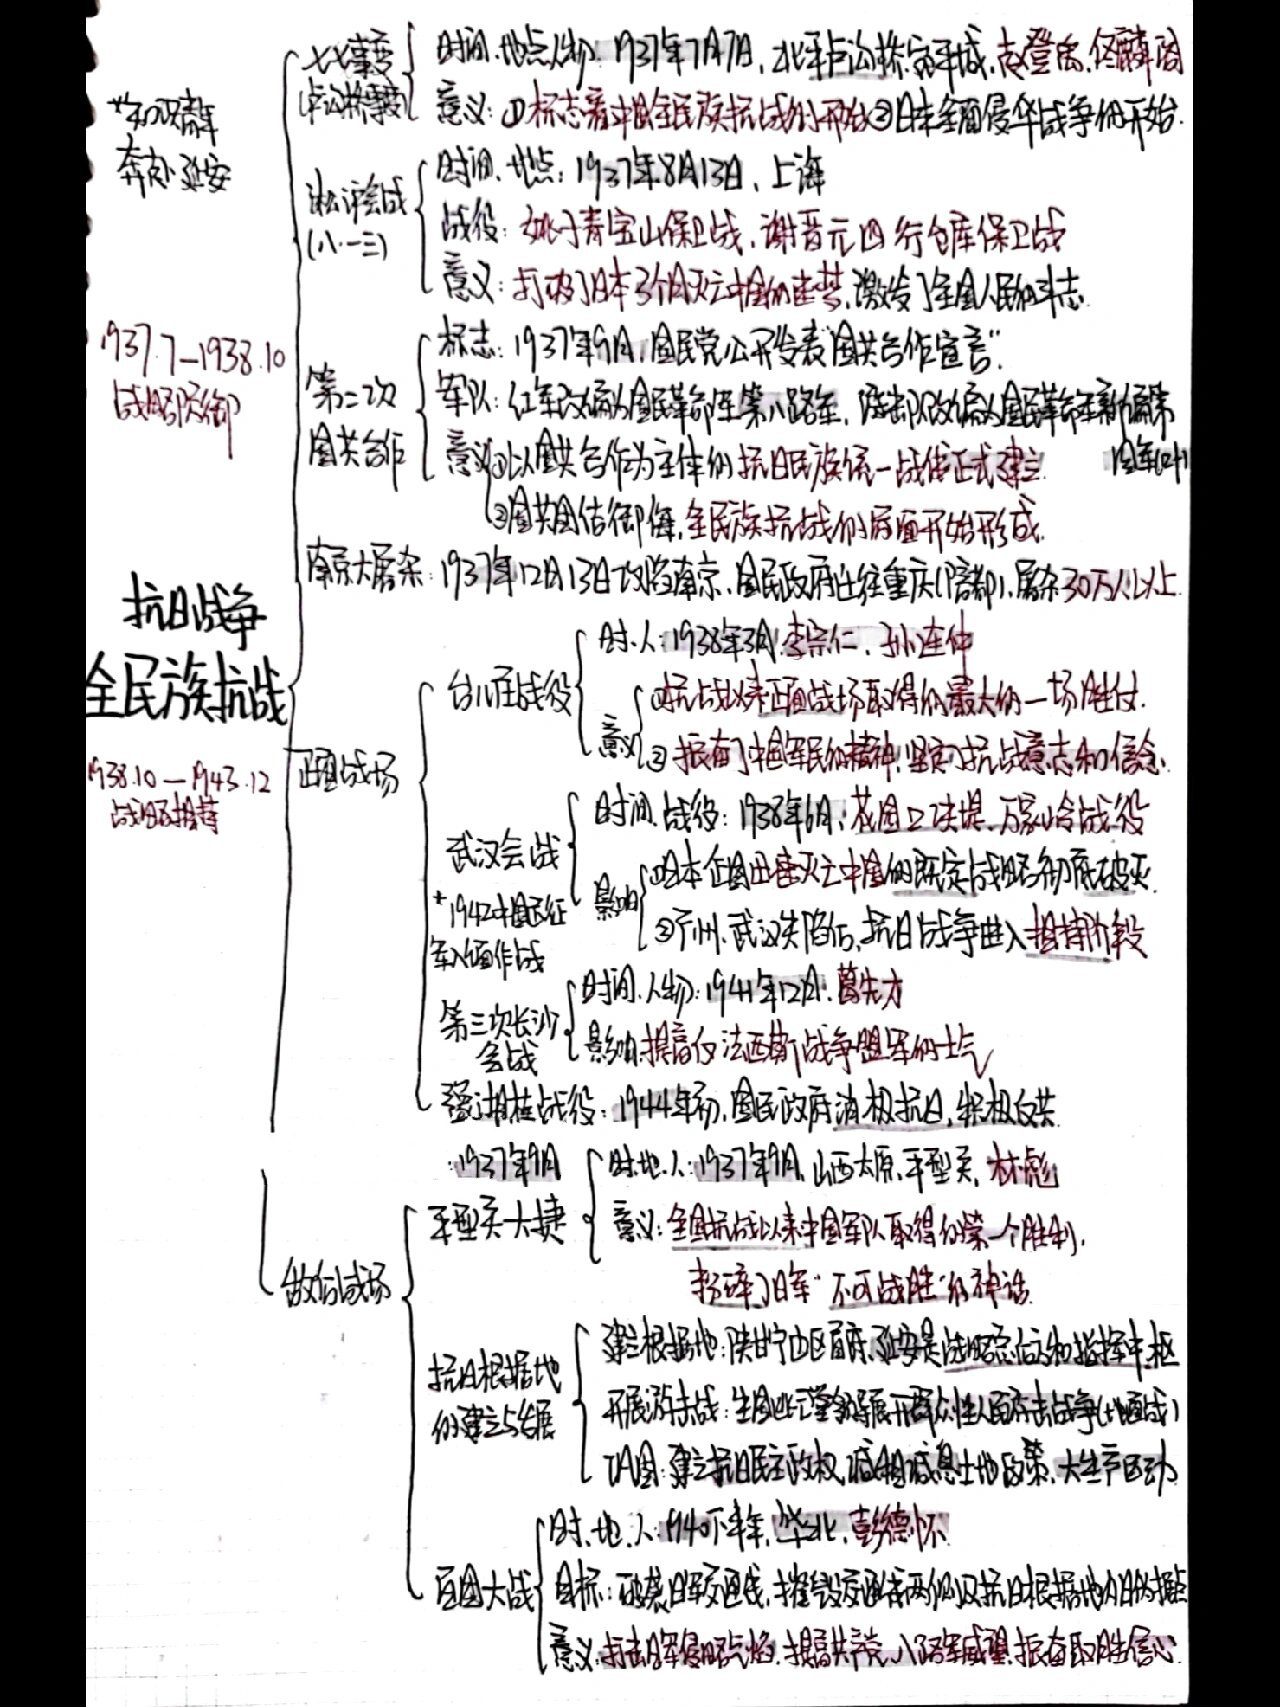 七七事变
(卢沟桥事变)
时间、地点、人物：1937年7月7日，北平卢沟桥、宛平城，赵登禹、佟麟阁
意义：①标志着中国全民族抗战的开始②日本全面侵华战争的开始
*知识青年
奔赴延安
淞沪会战
(八·一三)
时间、地点：1937年8月13日、上海
战役：姚子青宝山保卫战，谢晋元四行仓库保卫战
意义：打破了日本3个月灭亡中国的迷梦，激发了全国人民的斗志
1937.7—1938.10
战略防御
第二次
国共合作
标志：1937年9月，国民党公开发表"国共合作宣言"
军队：红军改编为国民革命军第八路军，改编为国民革命军新编第
四军
意义①以国共合作为主体的抗日民族统一战线正式建立
②国共团结御侮，全民族抗战的局面开始形成
南京大屠杀：1937年12月13日攻陷南京，国民政府迁往重庆(陪都)，屠杀30万人以上
抗日战争
全民族抗战
1938.10—1943.12
战略相持
正面战场
台儿庄战役
时、人：1938年3月，李宗仁、孙连仲
意义
①抗战以来正面战场取得的最大的一场胜仗
②振奋了中国军民的精神，坚定了抗战意志和信念
武汉会战
时间、战役：1938年6月；花园口决堤、万家岭战役
影响
①日本企图迅速灭亡中国的既定战略彻底破灭
②广州、武汉失陷后，抗日战争进入相持阶段
*1942中国远征
军入缅作战
第三次长沙
会战
时间、人物：1941年12月，葛先才
影响：提高反法西斯战争盟军的士气
豫湘桂战役：1944年初，国民政府消极抗日，积极反共
敌后战场
:1937年9月
平型关大捷
时、地、人：1937年9月，山西太原、平型关，林彪
意义：全国抗战以来中国军队取得的第一个胜利，
粉碎了日军"不可战胜"的神话
抗日根据地
的建立与发展
建立根据地：陕甘宁边区首府延安是战略总后方和指挥中枢
开展游击战：展开群众性人民游击战争(地道战)
巩固：建立抗日民主政权，减租减息土地政策，大生产运动
百团大战
时、地、人：1940下半年，华北，彭德怀
目标：破袭日军交通线，摧毁交通线两侧及抗日根据地内日伪据点
意义：打击日军侵略气焰，提高共产党、八路军威望，振奋取胜信心